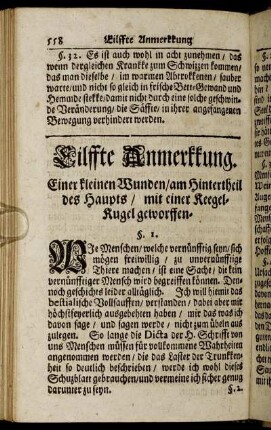 558 Eilffte Anmerkkung
§. 32. Es ist auch wohl in acht zunehmen / das
wenn dergleichen Krankke zum Schwizzen kommen /
das man dieselbe / im warmen Abtrokkenen / sauber
warte / und nicht so gleich in frische Bett-Gewand und
Hemde stekke / damit nicht durch eine solche geschwin-
de Veränderung / die Säffte / in ihrer angefangenen
Bewegung verhindert werden.
Eilffte Anmerkkung.
Einer kleinen Wunden / am Hintertheil
des Haupts / mit einer Keegel-
Kugel geworffen.
§. 1.
Wie Menschen / welche vernünfftig seyn / sich
mögen freiwillig / zu unvernünfftige
Thiere machen / ist eine Sache / die kein
vernünfftiger Mensch wird begreiffen können. Den-
noch geschichts leider alltäglich. Ich will hiemit das
bestialische Vollsauffen / verstanden / dabei aber mir
höchstfeyerlich ausgebehten haben / mir das was ich
davon sage / und sagen werde / nicht zum übeln aus
zulegen. So lange die Dicta der H. Schrifft von
uns Menschen müssen für vollkommene Wahrheiten
angenommen werden / die das Laster der Trunkken-
heit so deutlich beschrieben / werde ich wohl dieses
Schuzblatt gebrauchen / und vermeine ich sicher genug
darunter zu seyn. §. 2.